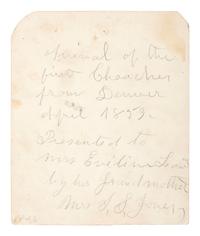 arrival of the
first Choaches
from Denver
April 1859.
Presented to
Mrs
by her Grandmother
Mrs S. S. Jones